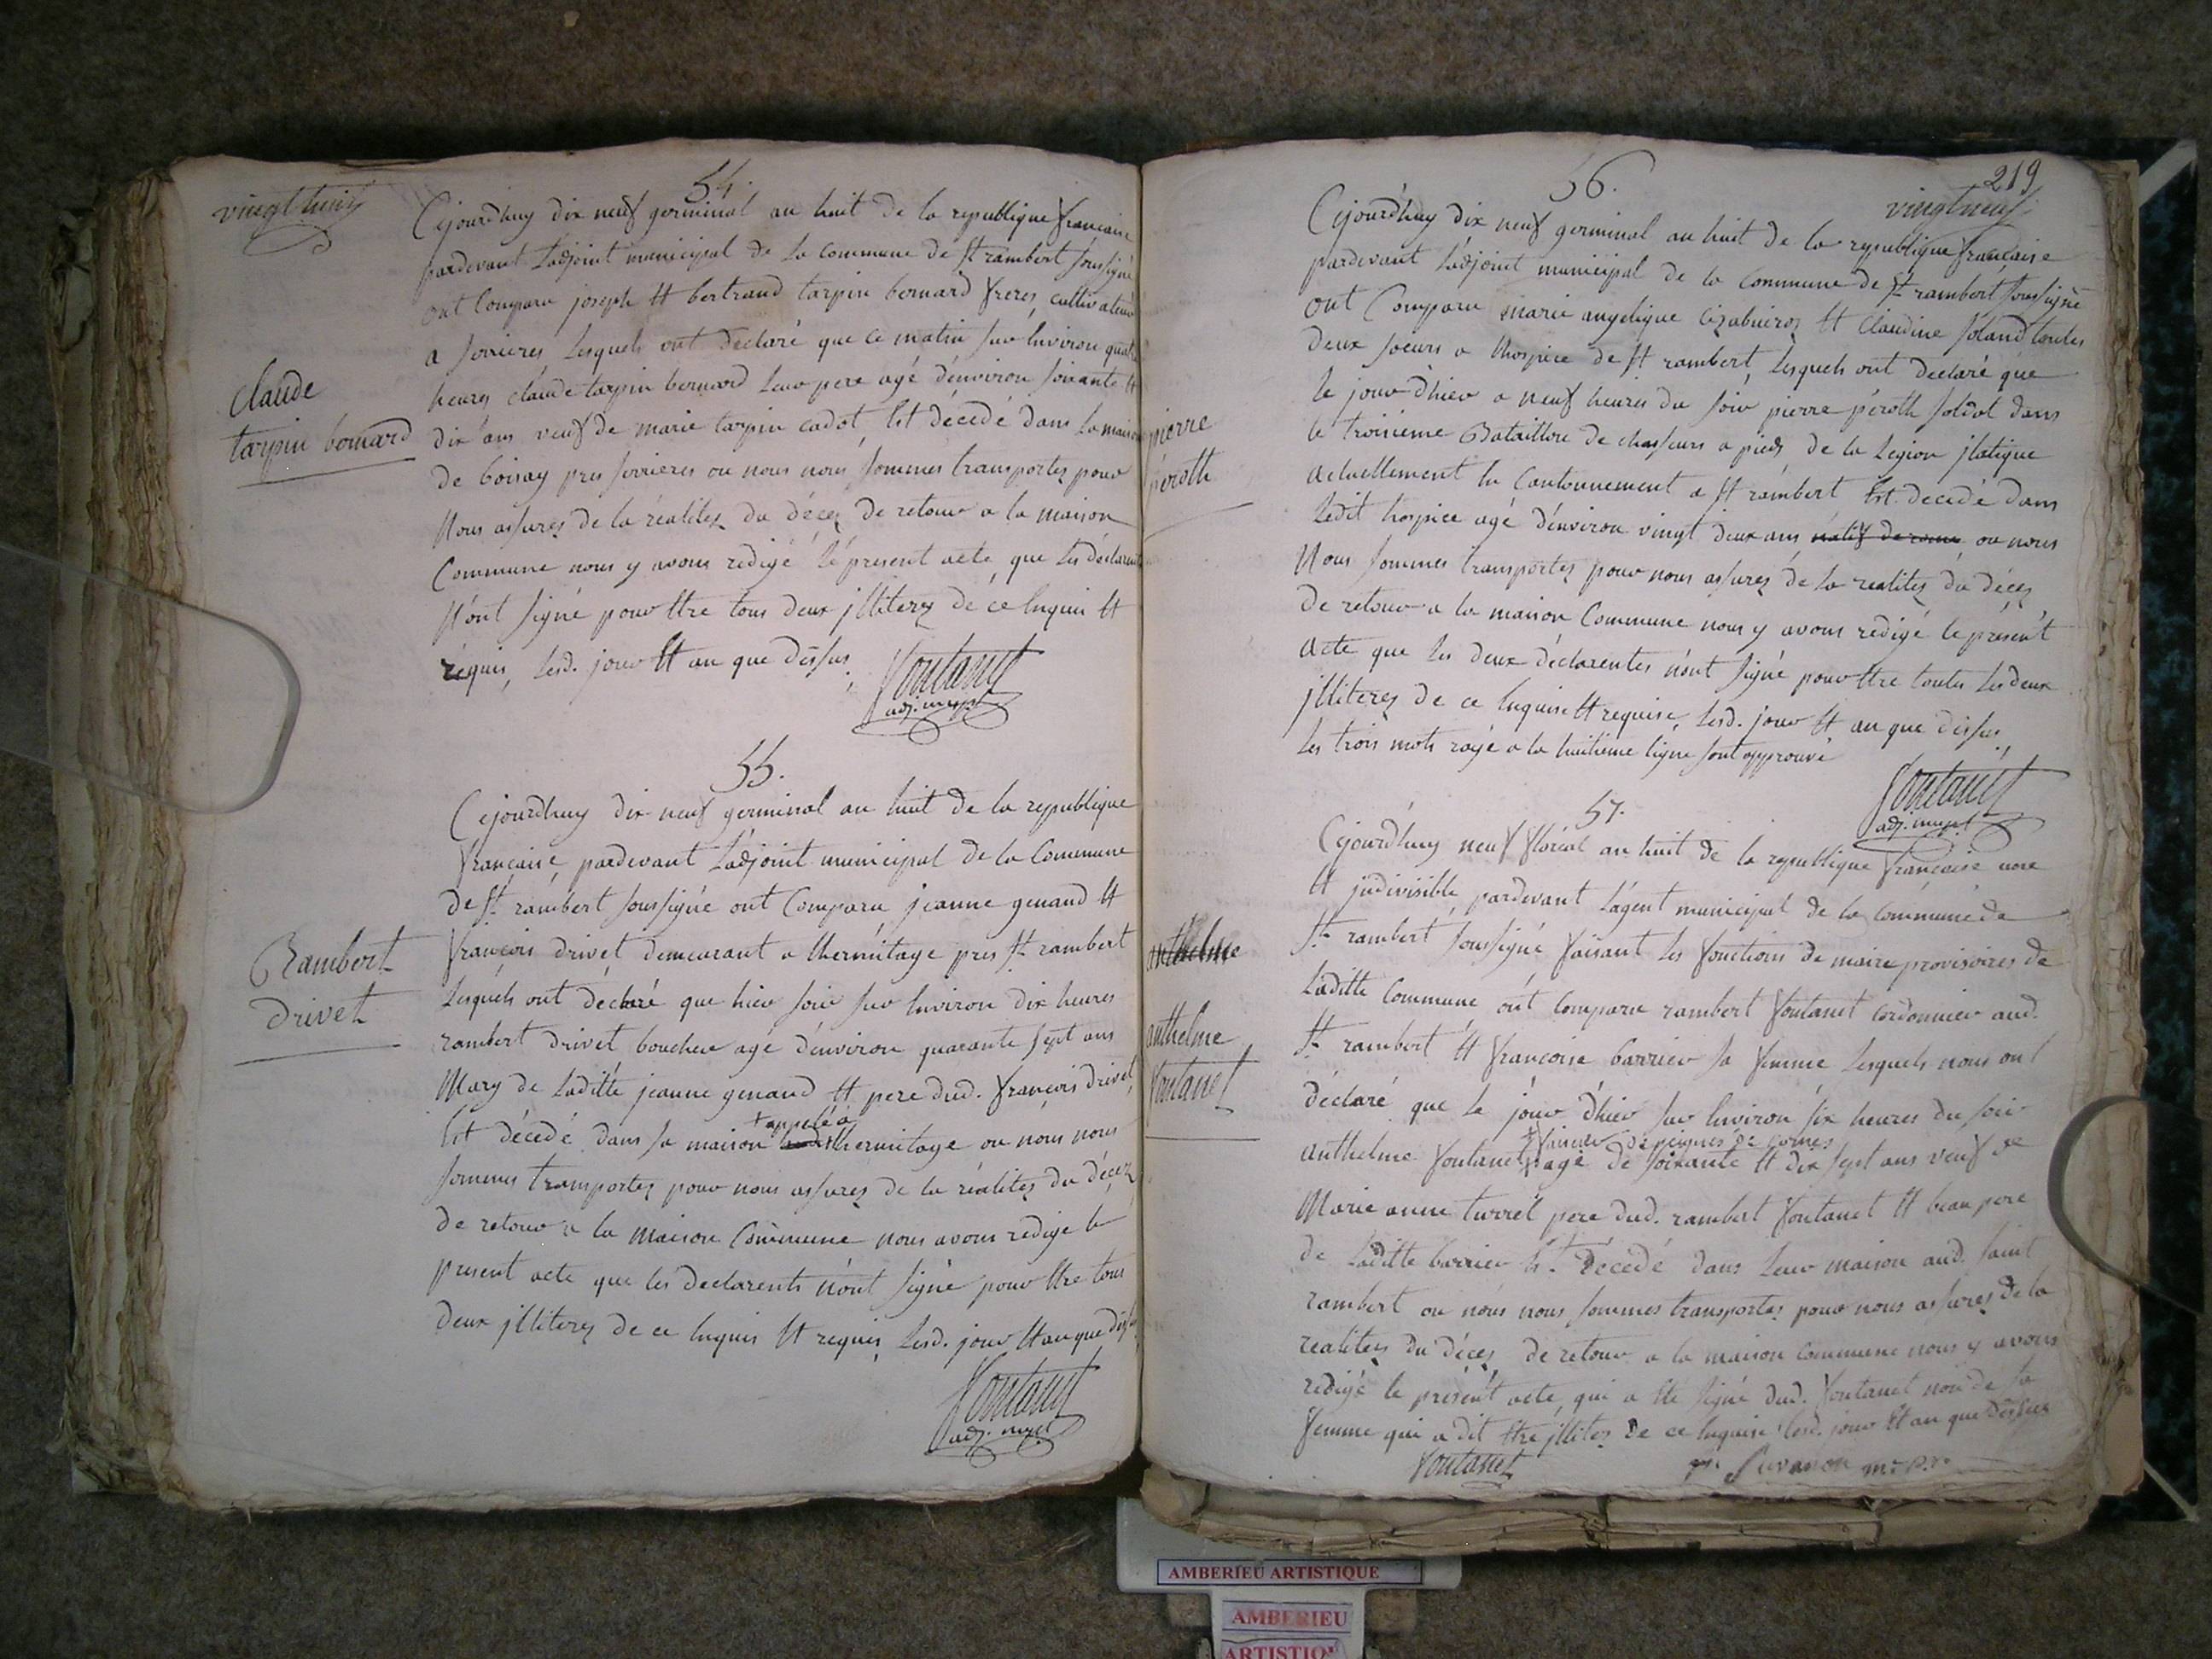 vingt huit
54.
Cejourdhuy dix neuf germinal an huit de la republique francaise
pardevant Ladjoint municipal de la Commune de St rambert soussigné
ont Comparu joseph et bertrand tarpin bornard freres cultivateurs
a serrieres Lesquels ont declaré que ce matin sur Environ quatre
heures claude tarpin bernard Leur pere agé denviron soixante et
claude
tarpin bornard
dix ans veuf de marie tarpin cadot, Est décedé dans La maison
de boisay pres serrieres ou nous nous sommes transportez pour
Nous assurez de la réalitez du décez de retour a la maison
Commune nous y avons redigé le present acte, que les declarents
N'ont signé pour Etre tous deux illiterez de ce Enquis Et
réquis, Lesd. jour Et an que dessus,
Fontanet
adj. mupl
55.
Cejourdhuy dix neuf germinal an huit de la republique
française, pardevant Ladjoint municipal de la Commune
de St rambert soussigné ont Comparu jeanne genaud Et
françois drivet demeurant a Lhermitage pres St rambert
Rambert
drivet
Lesquels ont declaré que hier soir sur Environ dix heures
rambert drivet boucher agé denviron quarante sept ans
Mary de Laditte jeanne genaud Et pere dud. françois drivet
+ appelé a
Est décedé dans sa maison Lhermitage ou nous nous
sommes transportez pour nous assurez de la réalitez du décez
de retour a la maison Commune nous avons redigé le
present acte que les declarents n'ont signé pour Etre tous
deux illiterez de ce Enquis Et requis, Lesd. jour Et an que dessus
Fontanet
adj. mupl
219
vingt neuf
56.
Cejourdhuy dix neuf germinal an huit de la republique française
pardevant Ladjoint municipal de la Commune de St rambert soussigné
ont Comparu marie angelique Et Claudine soland toutes
deux soeurs a Lhospice de St rambert, Lesquels ont declaré que
le jour dhier a neuf heures du soir pierre péroth soldat dans
pierre
péroth
le troisième Bataillon de chasseurs a pieds de la Legion jtalique
actuellement En Cantonnement a St rambert, Est decedé dans
Ledit hospice agé denviron vingt deux ans natif de rome ou nous
Nous sommes transportez pour nous assurez de la realitez du décez
de retour a la maison Commune nous y avons redigé le present
acte que les deux déclarentes n'ont signé pour Etre toutes Les deux
illiterez de ce Enquise Et requise, Lesd. jour Et an que dessus,
Les trois mots rayé a la huitième ligne sont approuvé
Fontanet
adj. mupl
57.
Cejourdhuy neuf floréal an huit de la republique française une
Et indivisible, pardevant Lagent municipal de la Commune de
anthelme
St rambert soussigné faisant les fonctions de maire provisoires de
Laditte Commune, ont Comparu rambert fontanet cordonnier aud.
anthelme
fontanet
St rambert Et françoise barrier sa femme Lesquels nous ont
déclaré que le jour dhier sur Environ six heures du soir
+ faiseur de peignes de cornes
anthelme fontanet + agé de soixante Et dix sept ans veuf de
Marie anne turrel pere dud. rambert fontanet Et beau pere
de Laditte barrier Est décedé dans Leur maison aud. saint
rambert ou nous nous sommes transportez pour nous assurez de la
realitez du décez, de retour a la maison commune nous y avons
redigé le présent acte, qui a Eté signé dud. fontanet non de sa
femme qui a dit Etre illiterez de ce Enquise Lesd. jour Et an que dessus
fontanet
AMBERIEU ARTISTIQUE
AMBERIEU
ARTISTIQU